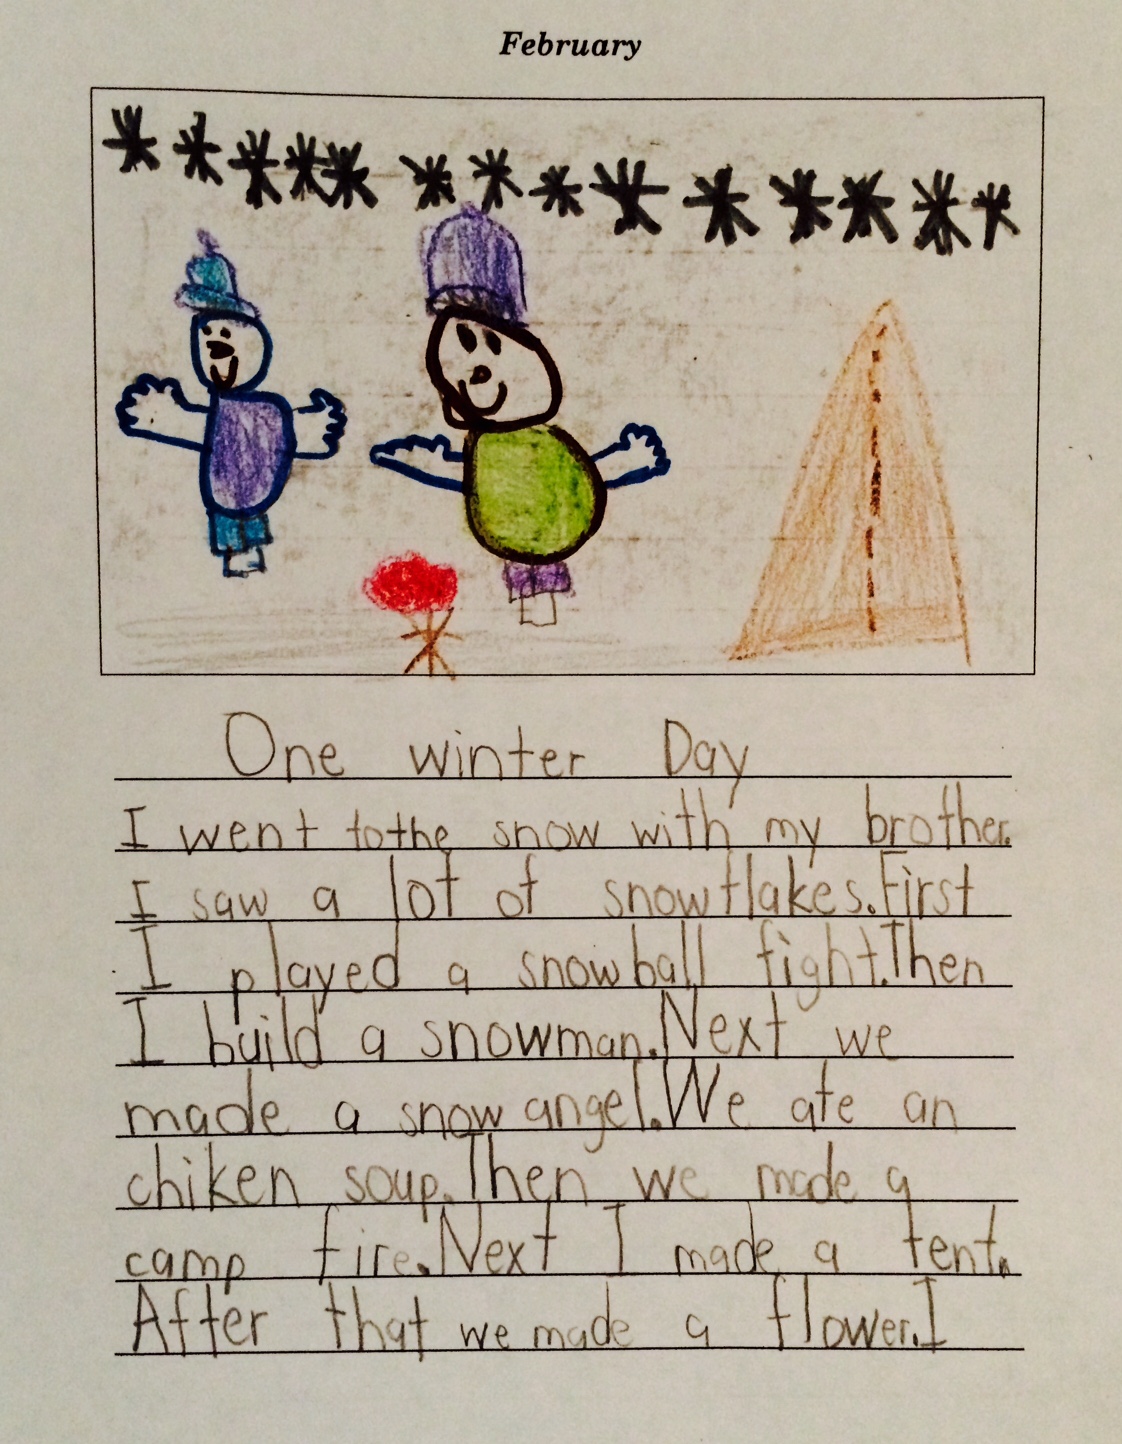 February
One winter Day
I went to the snow with my brother.
I saw a lot of snowflakes. First
I played a snowball fight. Then
I build a snowman. Next we
made a snow angel. We ate an
chiken soup. Then we made a
camp fire. Next I made a tent.
After that we made a flower. I